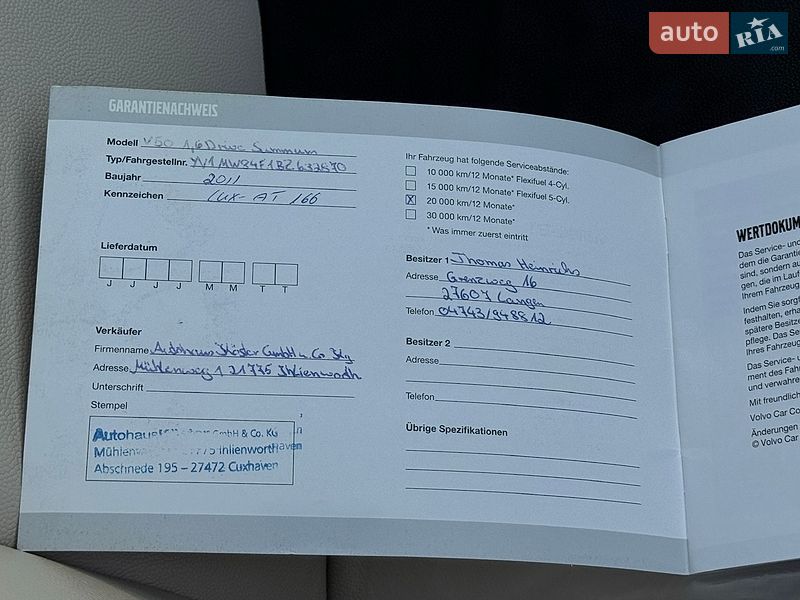 auto RIA .com
GARANTIENACHWEIS
Modell V50 1,6 Drive Summum
Typ/Fahrgestellnr. YV1MW84F1B2632870
Baujahr 2011
Kennzeichen CUX-AT 166
Lieferdatum
J J J J M M T T
Verkäufer
Firmenname Autohaus GmbH u. Co. KG
Adresse Mühlenweg 1 21775 Ihlienworth
Unterschrift
Stempel
Autohaus GmbH & Co. KG
Ihlienworth
Abschnede 195 – 27472 Cuxhaven
Ihr Fahrzeug hat folgende Serviceabstände:
10 000 km/12 Monate* Flexifuel 4-Cyl.
15 000 km/12 Monate* Flexifuel 5-Cyl.
X 20 000 km/12 Monate*
30 000 km/12 Monate*
* Was immer zuerst eintritt
Besitzer 1 Thomas Heinrichs
Adresse Grenzweg 16
27607 Langen
Telefon 04743/948812
Besitzer 2
Adresse
Telefon
Übrige Spezifikationen
WERTDOKUM
Das Service- und
dem die Garantie
sind, sondern au
gen, die im Lauf
Ihrem Fahrzeug
Indem Sie sorgf
festhalten, erha
spätere Besitze
pflege. Das Se
Ihres Fahrzeug
Das Service- u
ment des Fah
und verwahre
Mit freundlich
Volvo Car Co
Änderungen
© Volvo Car